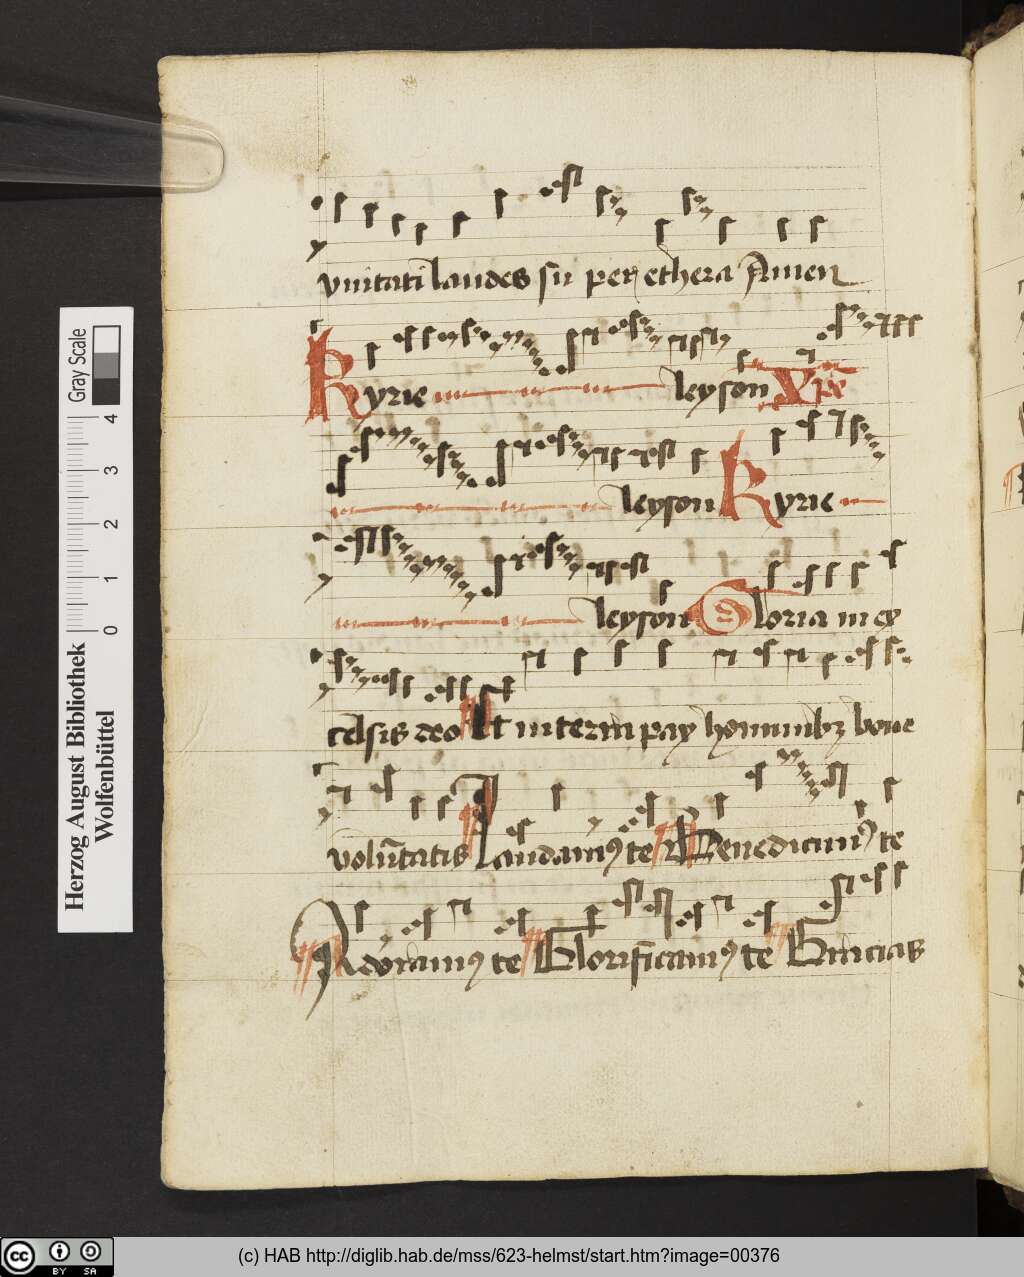 vnitati laudes sū per ethera Amen
Kyrie leyson Xpe
leyson Kyrie
leyson Gloria in ex
celsis deo Et in terra pax hominibꝫ bone
volūtatis Laudamꝰ te Benedicimꝰ te
Adoramꝰ te Glorificamꝰ te Gracias
Gray Scale
0 1 2 3 4
Herzog August Bibliothek
Wolfenbüttel
cc BY SA
(c) HAB http://diglib.hab.de/mss/623-helmst/start.htm?image=00376